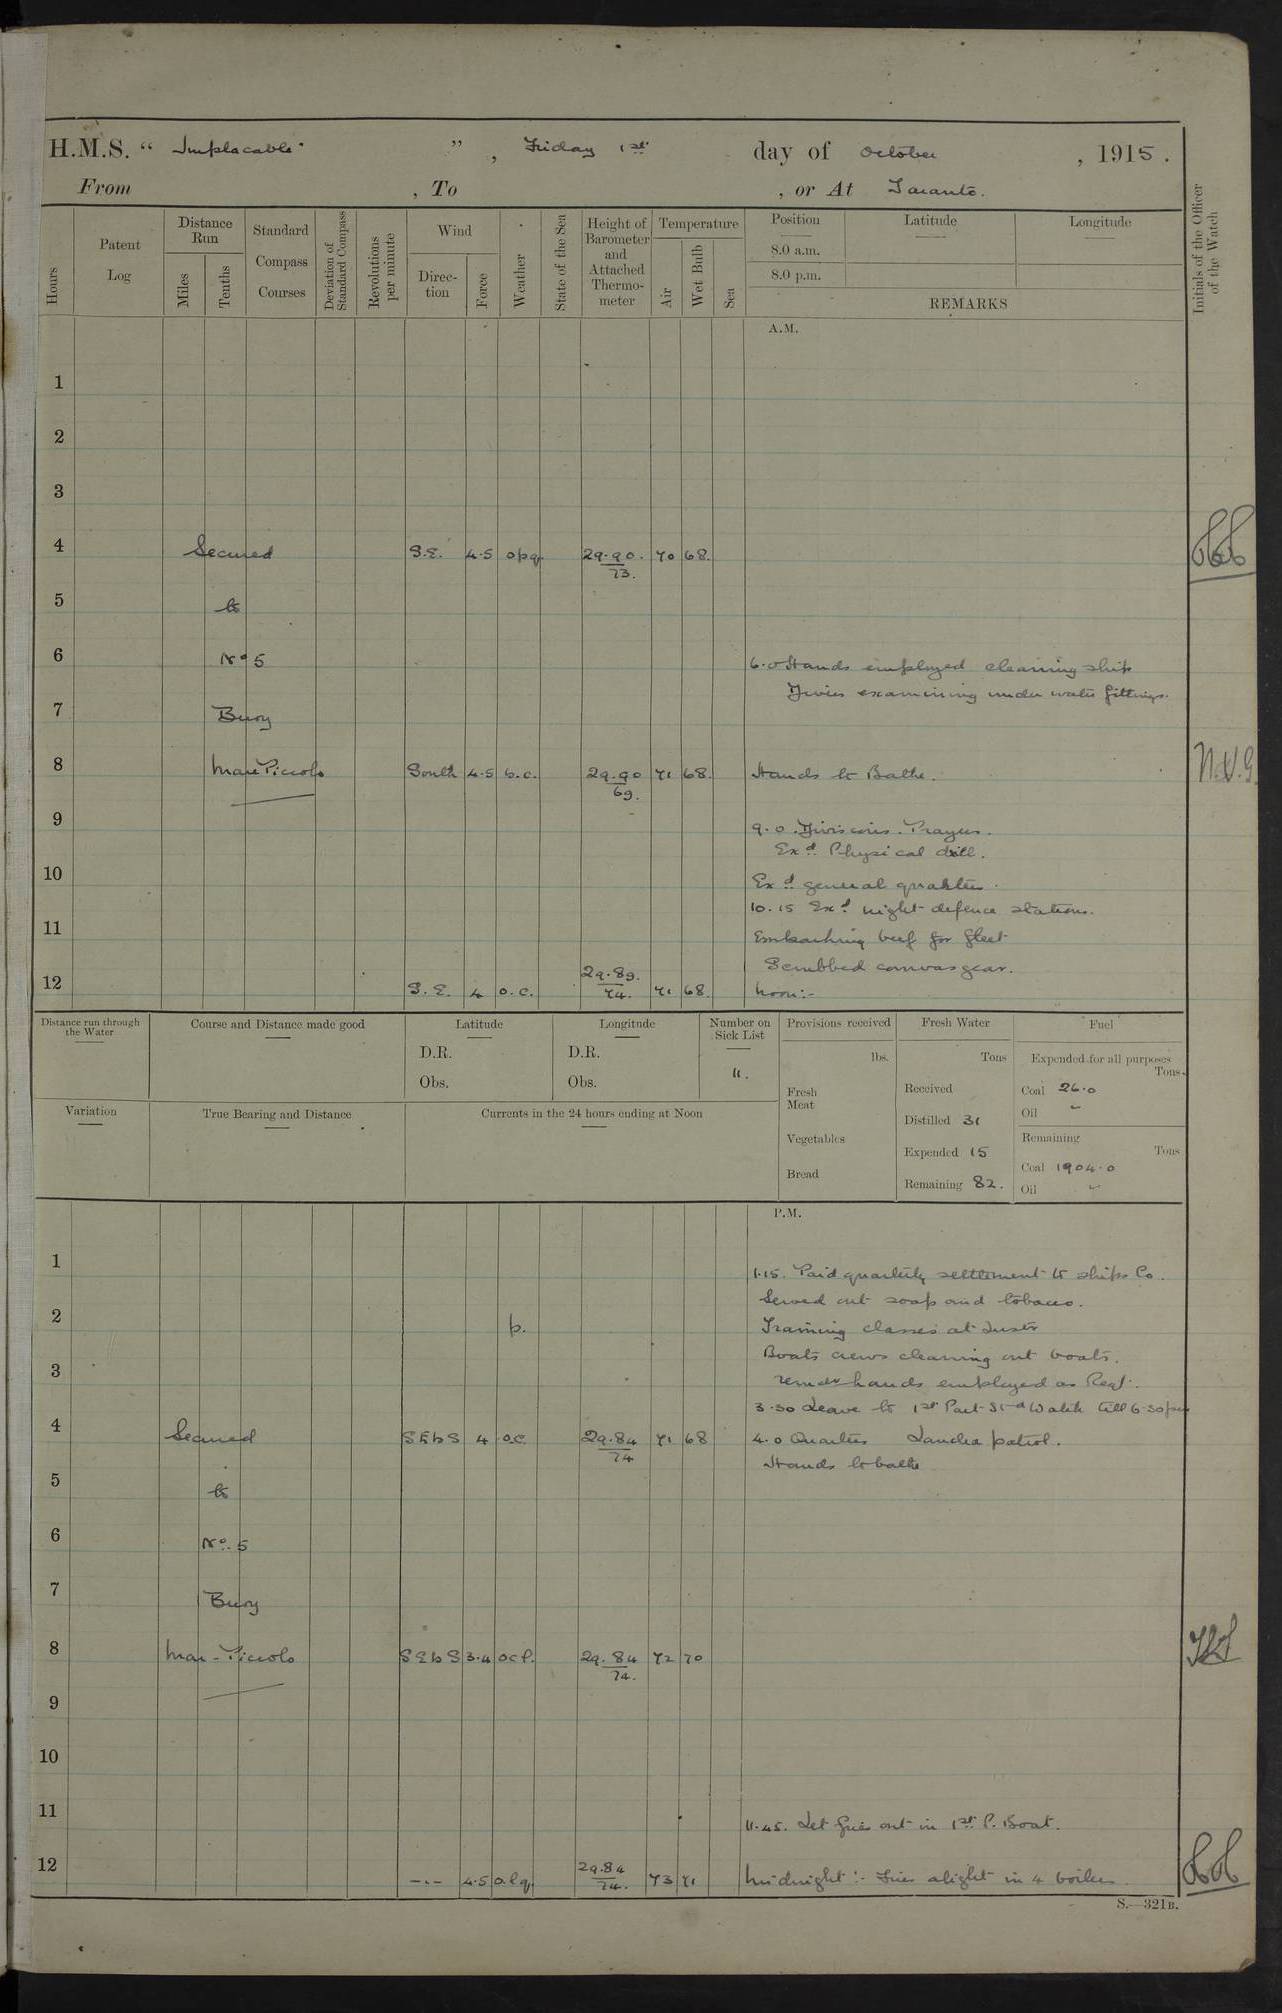 H.M.S. “ Implacable ” , Friday 1st day of October , 1915 .
From , To , or At Taranto.
Hours
Patent Log
Distance Run
Miles
Tenths
Standard Compass Courses
Deviation of Standard Compass
Revolutions per minute
Wind
Direction
Force
Weather
State of the Sea
Height of Barometer and Attached Thermometer
Temperature
Air
Wet Bulb
Sea
Position
Latitude
Longitude
8.0 a.m.
8.0 p.m.
REMARKS
Initials of the Officer of the Watch
A.M.
1
2
3
4 Secured S.E. 4.5 opq 29.90. 73. 70 68.
5 to
6 No 5 6.0 Hands employed cleaning ship
Divers examining under water fittings.
7 Buoy
8 Mare Piccolo South 4.5 b.c. 29.90 69. 71 68. Hands to Bathe. N.V.G
9 9.0. Divisions. Prayers.
Exd. Physical drill.
10 Exd. general quarters.
10.15 Exd. night defence stations.
11 Embarking beef for fleet
Scrubbed canvas gear.
12 S.E. 4 o.c. 29.89. 74. 71 68. Noon:-
Distance run through the Water
Course and Distance made good
Latitude
D.R.
Obs.
Longitude
D.R.
Obs.
Number on Sick List
11.
Provisions received
lbs.
Fresh Meat
Vegetables
Bread
Fresh Water
Tons
Received
Distilled 31
Expended 15
Remaining 82.
Fuel
Expended for all purposes
Tons.
Coal 26.0
Oil -
Remaining
Tons
Coal 1904.0
Oil -
Variation
True Bearing and Distance
Currents in the 24 hours ending at Noon
P.M.
1 1.15. Paid quarterly settlement to ships Co.
Served out soap and tobacco.
2 p. Training classes at Instr
Boats crews cleaning out boats.
3 remdr hands employed as Reqd.
3.30 Leave to 1st Part Stbd Watch till 6.30 pm
4 Secured SEbS 4 o.c. 29.84 74 71 68 4.0 Quarters Landed patrol.
Hands to bathe
5 to
6 No. 5
7 Buoy
8 Mar-Piccolo SEbS 3.4 ocl. 29.84 74. 72 70
9
10
11 11.45. Let fires out in 1st P. Boat.
12 -.- 4.5 olq. 29.84 74. 73 71 Midnight:- Fires alight in 4 boilers.
S.—321B.